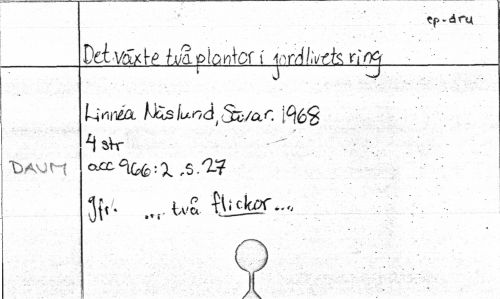 ep-dru
Det växte två plantor i jordlivets ring
Linnéa Näslund, Sävar. 1968
4 str
DAUM acc 966:2 .s. 27
Jfr. ... två flickor...